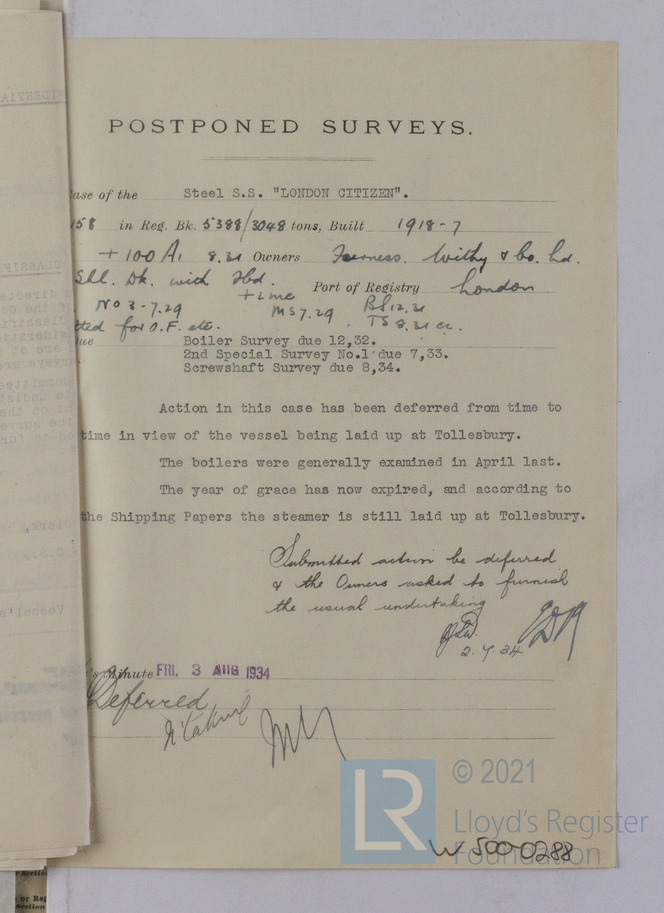 POSTPONED SURVEYS.
ase of the Steel S.S. "LONDON CITIZEN".
158 in Reg. Bk. 5388/3048 tons, Built 1918-7
+100A1 8.31 Owners Furness. Withy & Co. Ld.
Shl. Dk. with Fbd. Port of Registry London
+LMC
No 3-7.29 MS7.29 BS12.31
tted for O.F. etc. TS 8.31 CL.
ue Boiler Survey due 12,32.
2nd Special Survey No.1 due 7,33.
Screwshaft Survey due 8,34.
Action in this case has been deferred from time to
time in view of the vessel being laid up at Tollesbury.
The boilers were generally examined in April last.
The year of grace has now expired, and according to
the Shipping Papers the steamer is still laid up at Tollesbury.
Submitted action be deferred
& the Owners asked to furnish
the usual undertaking
's Minute FRI. 3 AUG 1934
Deferred
LR
© 2021
Lloyd's Register
Foundation
W500-0288